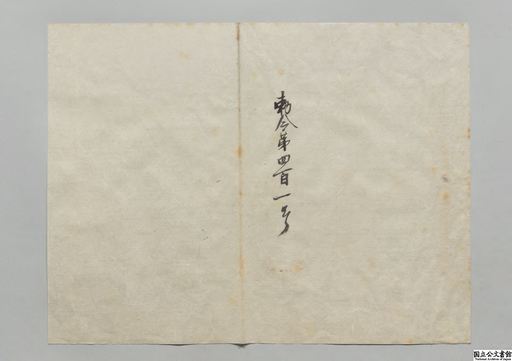 勅令第四百一号
国立公文書館
National Archives of Japan